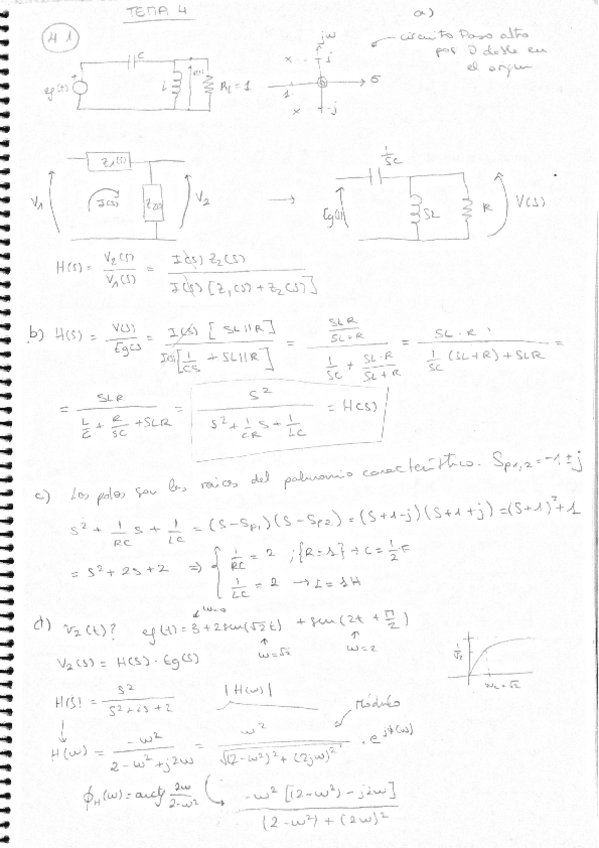 TEMA 4
4.1
a)
jω
circuito Paso alto
por 0 doble en
el origen
C
eg(t)
L
RL = 1
x
j
σ
-1
x
-j
Z1(s)
V1
I(s)
Z2(s)
V2
→
1/SC
Eg(s)
SL
R
V(s)
H(s) = V2(s)/V1(s) = I(s) Z2(s) / I(s) [Z1(s) + Z2(s)]
b) H(s) = V(s)/Eg(s) = I(s) [SL||R] / I(s) [1/CS + SL||R] = (SLR/(SL+R)) / (1/SC + SL·R/(SL+R)) = SL·R / (1/SC (SL+R) + SLR) =
= SLR / (L/C + R/SC + SLR) = S² / (S² + 1/CR S + 1/LC) = H(s)
c) Los polos son las raices del polinomio característico. Sp1,2 = -1 ± j
S² + 1/RC S + 1/LC = (S-Sp1)(S-Sp2) = (S+1-j)(S+1+j) = (S+1)² + 1
= S² + 2S + 2 ⇒ { 1/RC = 2 ; {R=1} → C = 1/2 F
1/LC = 2 → L = 1H
ω=0
d) V2(t)? eg(t) = 3 + 2sen(√2t) + sen(2t + π/2)
ω=√2
ω=2
V2(s) = H(s) · Eg(s)
1/√2
ωc = √2
H(s) = S² / (S² + 2S + 2)
|H(ω)|
Módulo
H(ω) = -ω² / (2-ω²+j2ω) = ω² / √((2-ω²)² + (2jω)²) · e^jϕ(ω)
ϕH(ω) = arctg 2ω/(2-ω²)
-ω² [(2-ω²) - j2ω] / ((2-ω²) + (2ω)²)